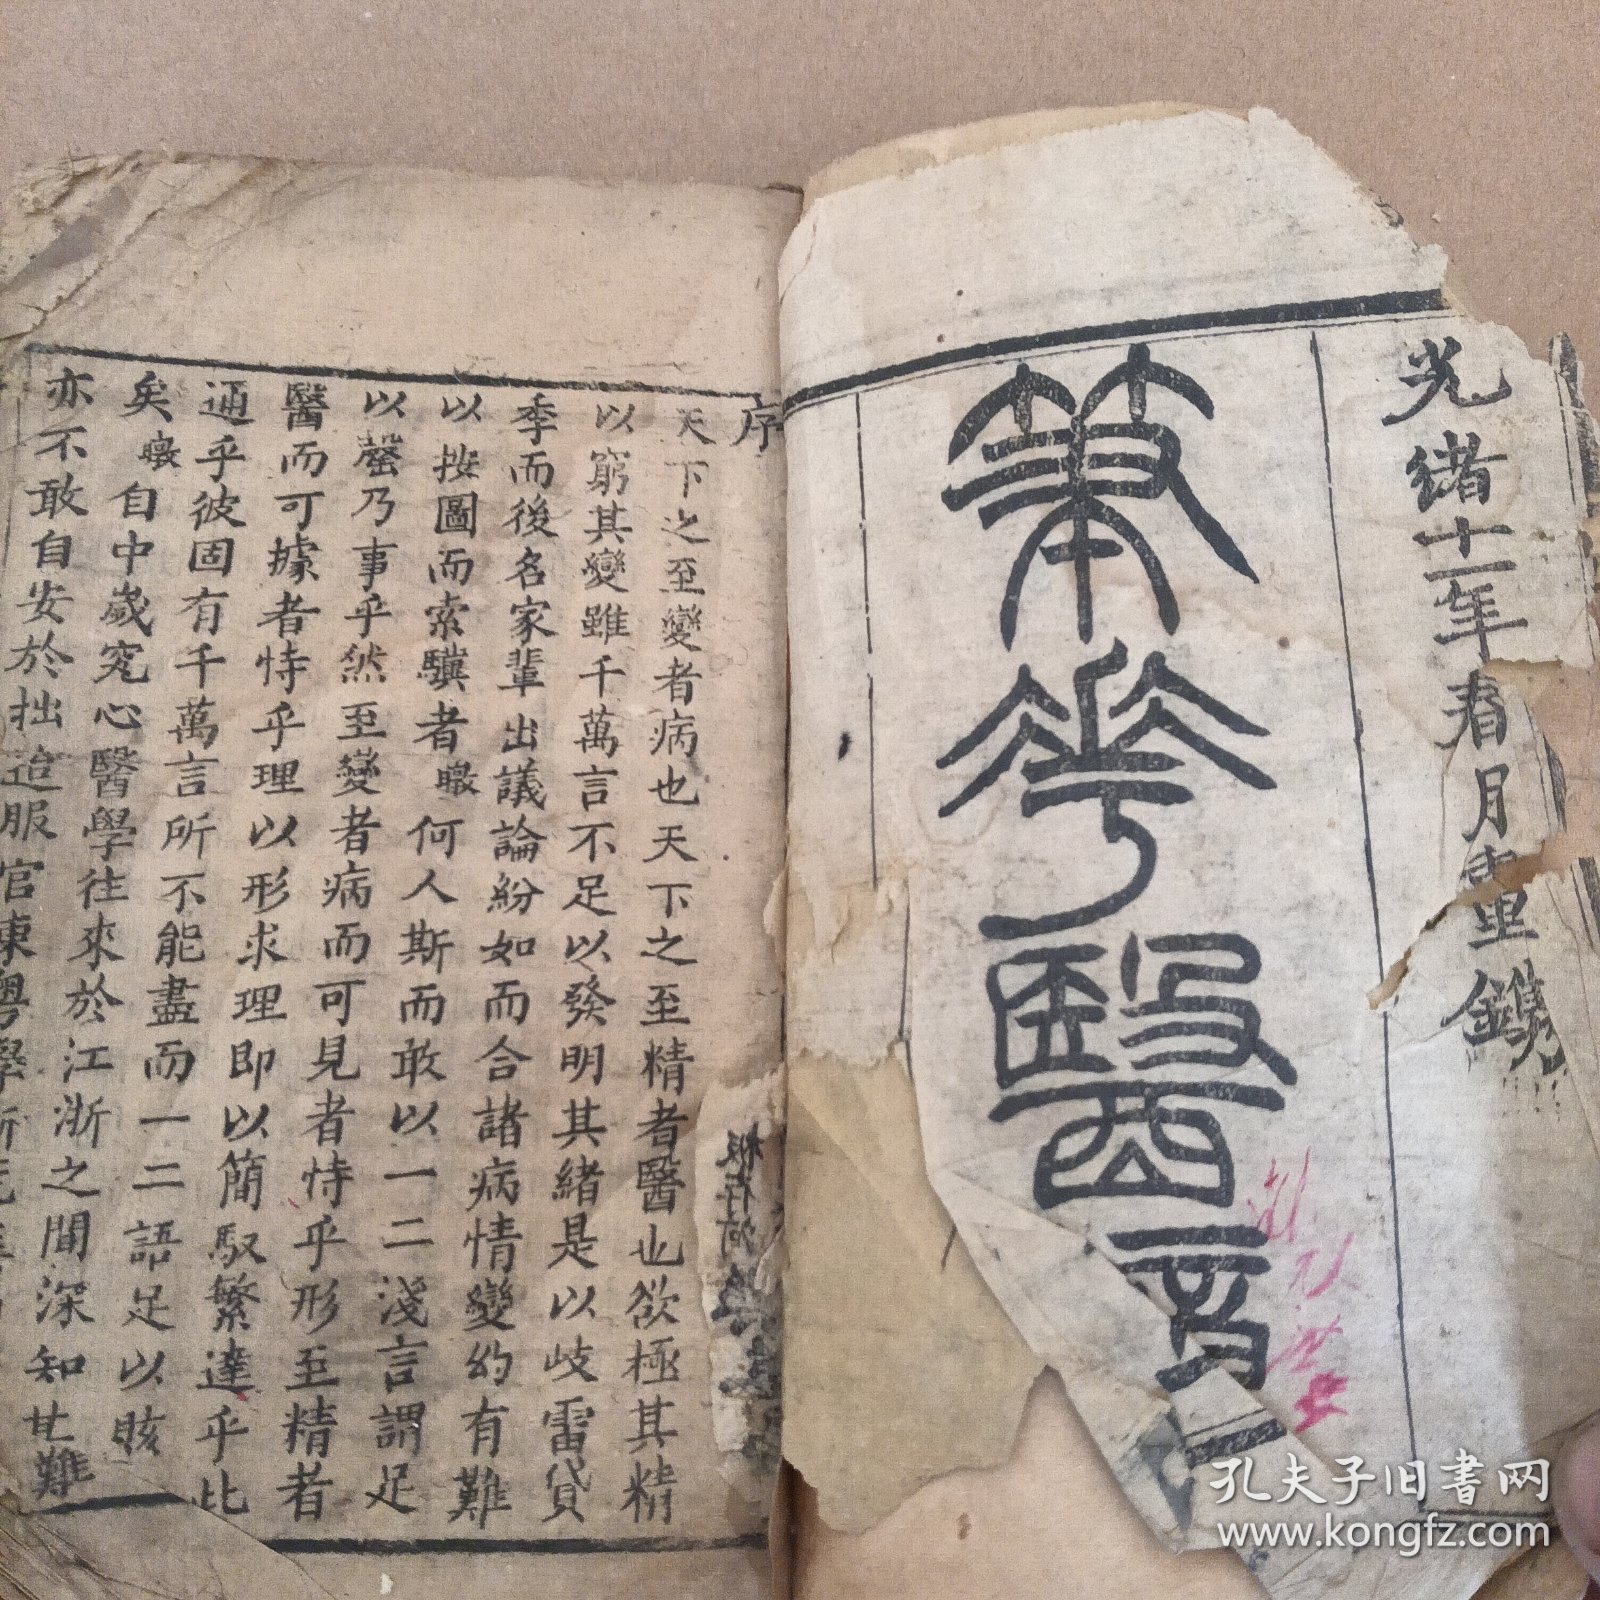 光緒十一年春月重鐫
筆花醫
序
天下之至變者病也天下之至精者醫也欲極其精
以窮其變雖千萬言不足以發明其緒是以岐雷貸
季而後名家輩出議論紛如而合諸病情變約有難
以按圖而索驥者㬊何人斯而敢以一二淺言謂足
以罄乃事乎然至變者病而可見者恃乎形至精者
醫而可據者恃乎理以形求理即以簡馭繁達乎比
通乎彼固有千萬言所不能盡而一二語足以賅
矣㬊自中歲究心醫學往來於江浙之間深知其難
亦不敢自安於拙迨服官東粵學
孔夫子旧书网
www.kongfz.com